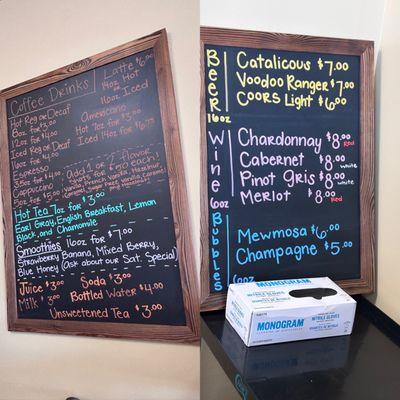 Coffee Drinks
Hot Reg or Decaf
8oz for $3.00
12oz for $3.00
16oz for $4.00
Iced Reg or Decaf
16oz for $4.00
Espresso
3oz for $4.00
Cappuccino
5oz for $5.00
Latte $6.00
14oz Hot
or
16oz Iced
Americano
Hot 7oz for $3.00
Iced 14oz for $4.75
Add 1 or 2 Flavor
Shots for $1.00 each
Vanilla, French Vanilla, Hazelnut,
Caramel, Sugar Free Vanilla, Caramel
and Hazelnut
Hot Tea 7oz for $3.00
Earl Gray, English Breakfast, Lemon
Black, and Chamomile
Smoothies 16oz for $7.00
Strawberry Banana, Mixed Berry,
Blue Honey (Ask about our Sat. Special)
Juice $3.00 Soda $3.00
Milk $3.00 Bottled Water $4.00
Unsweetened Tea $3.00
Beer
16oz
Catalicous $7.00
Voodoo Ranger $7.00
Coors Light $6.00
Wine
6oz
Chardonnay $8.00 Red
Cabernet $8.00 White
Pinot Gris $8.00 White
Merlot $8.00 Red
Bubbles
6oz
Mewmosa $6.00
Champagne $5.00
MONOGRAM
NITRILE GLOVES
MONOGRAM
NITRILE GLOVES
GUANTES DE NITRILO